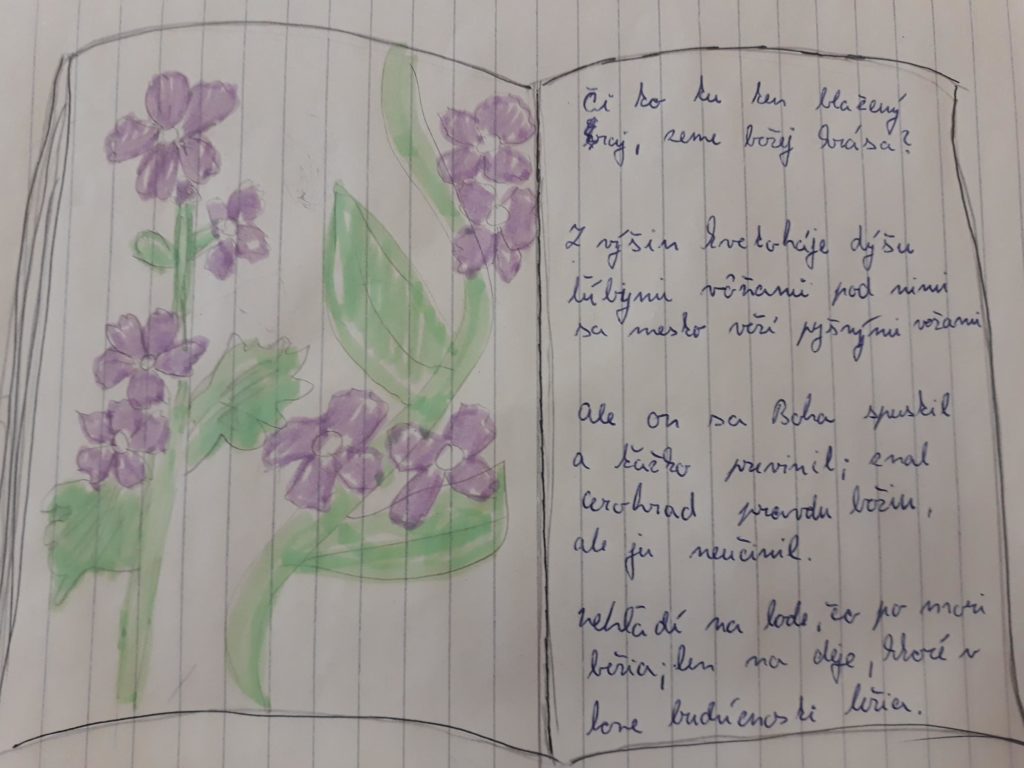 Či to tu ten blažený
kraj, zeme božej krása?
Z výšin kvetoháje dýšu
ľúbymi vôňami pod nimi
sa mesto věží pyšnými vežami
ale on sa Boha spustil
a ťažko previnil; znal
carohrad pravdu božiu,
ale ju neučinil.
nehľadí na lode, čo po mori
bežia; len na deje, ktoré v
lone budúcnosti ležia.